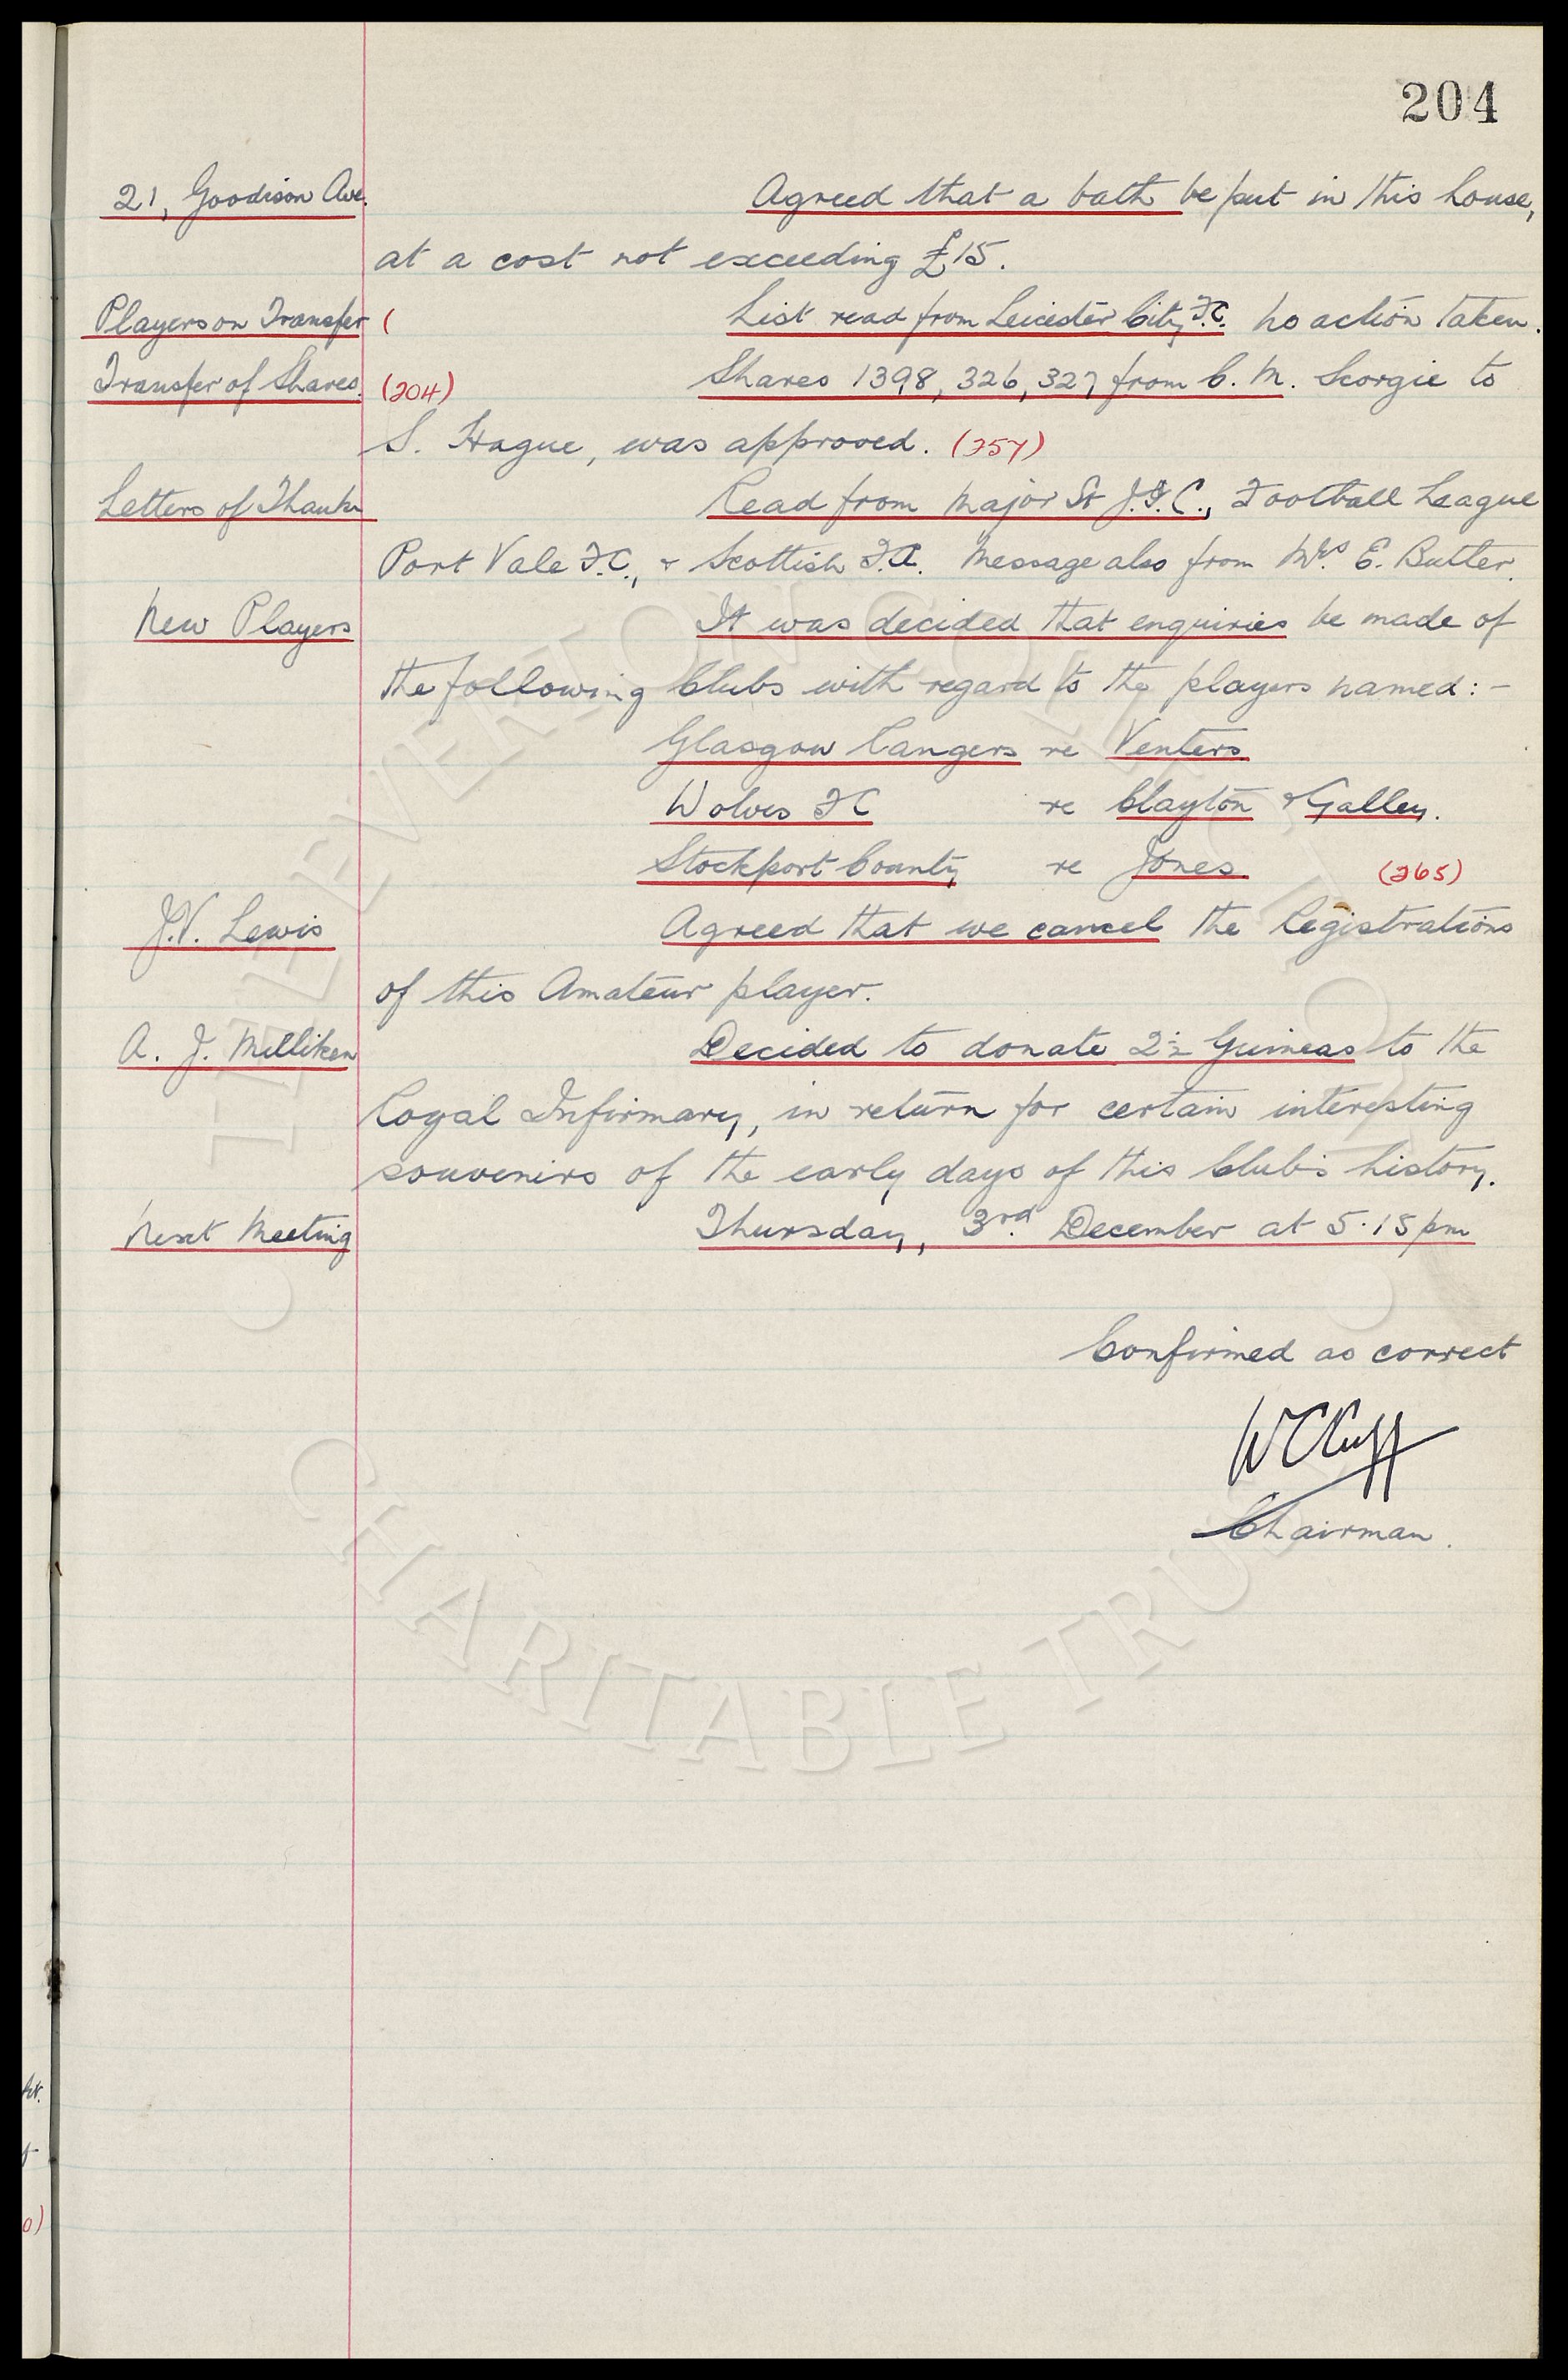 204
21, Goodison Ave. Agreed that a bath be put in this house,
at a cost not exceeding £15.
Players on Transfer ( List read from Leicester City F.C. No action taken.
Transfer of Shares. (204) Shares 1398, 326, 327 from C. M. Scorgie to
S. Hague, was approved. (257)
Letters of Thanks Read from Major St J.F.C., Football League
Port Vale F.C., & Scottish F.A. Message also from Mrs. E. Butler.
New Players It was decided that enquiries be made of
the following Clubs with regard to the players named:-
Glasgow Rangers re Venters
Wolves FC re Clayton & Galley.
Stockport County re Jones. (265)
J.V. Lewis Agreed that we cancel the Registrations
of this Amateur player.
A. J. Milliken Decided to donate 2½ Guineas to the
Royal Infirmary, in return for certain interesting
souvenirs of the early days of this Club's history.
Next Meeting Thursday, 3rd. December at 5.15 pm
Confirmed as correct
W C Cuff
Chairman.
THE EVERTON COLLECTION
CHARITABLE TRUST